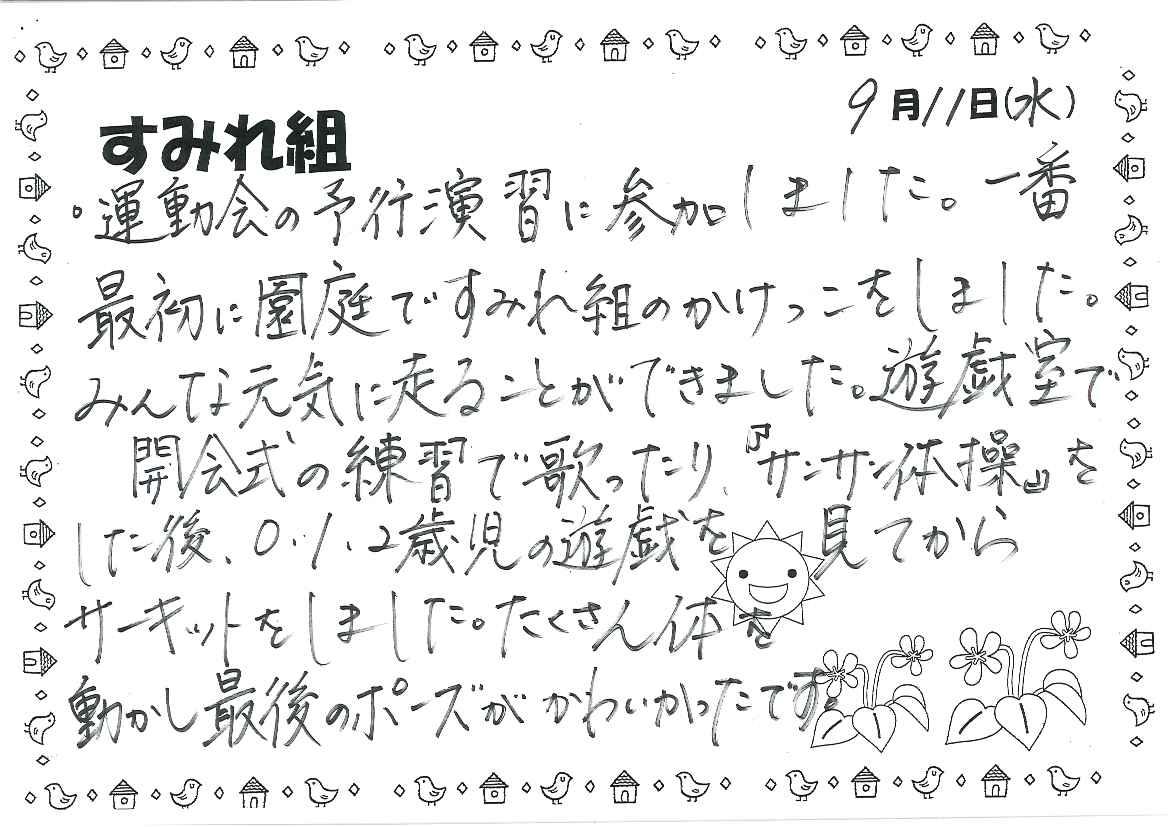 9月11日(水)
すみれ組
・運動会の予行演習に参加しました。一番
最初に園庭ですみれ組のかけっこをしました。
みんな元気に走ることができました。遊戯室で
開会式の練習で歌ったり、『サンサン体操』を
した後、0.1.2歳児の遊戯を見てから
サーキットをしました。たくさん体を
動かし最後のポーズがかわいかったです。